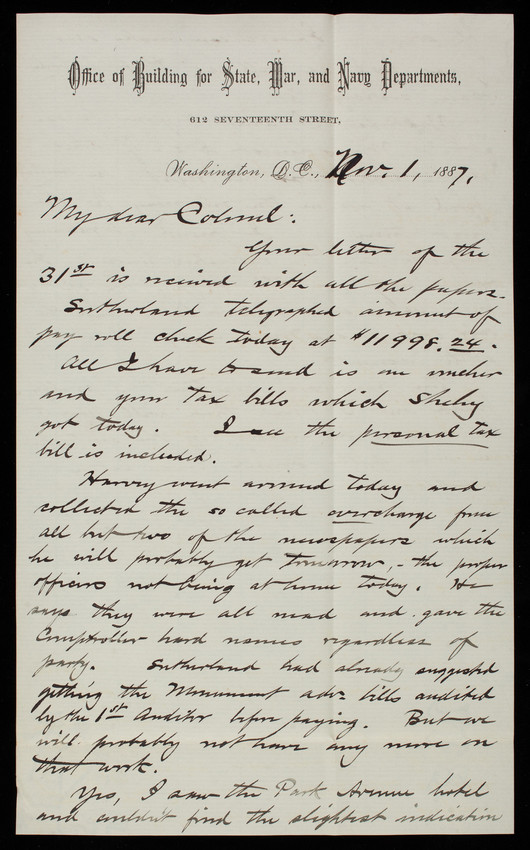 Office of Building for State, War, and Navy Departments,
612 SEVENTEENTH STREET,
Washington, D.C., Nov. 1, 1887,
My dear Colonel:
Your letter of the
31st is received with all the papers.
Sutherland telegraphed amount of
pay roll check today at $11998.24.
All I have to send is one voucher
and your tax bills which Shelvy
got today. I see the personal tax
bill is included.
Harvey went around today and
collected the so called overcharge from
all but two of the newspapers which
he will probably get tomorrow, - the proper
officers not being at home today. He
says they were all mad and gave the
Comptroller hard names regardless of
party. Sutherland had already suggested
getting the Monument advr. bills audited
by the 1st Auditor before paying. But we
will probably not have any more on
that work.
Yes, I saw the Park Avenue hotel
and couldn't find the slightest indication